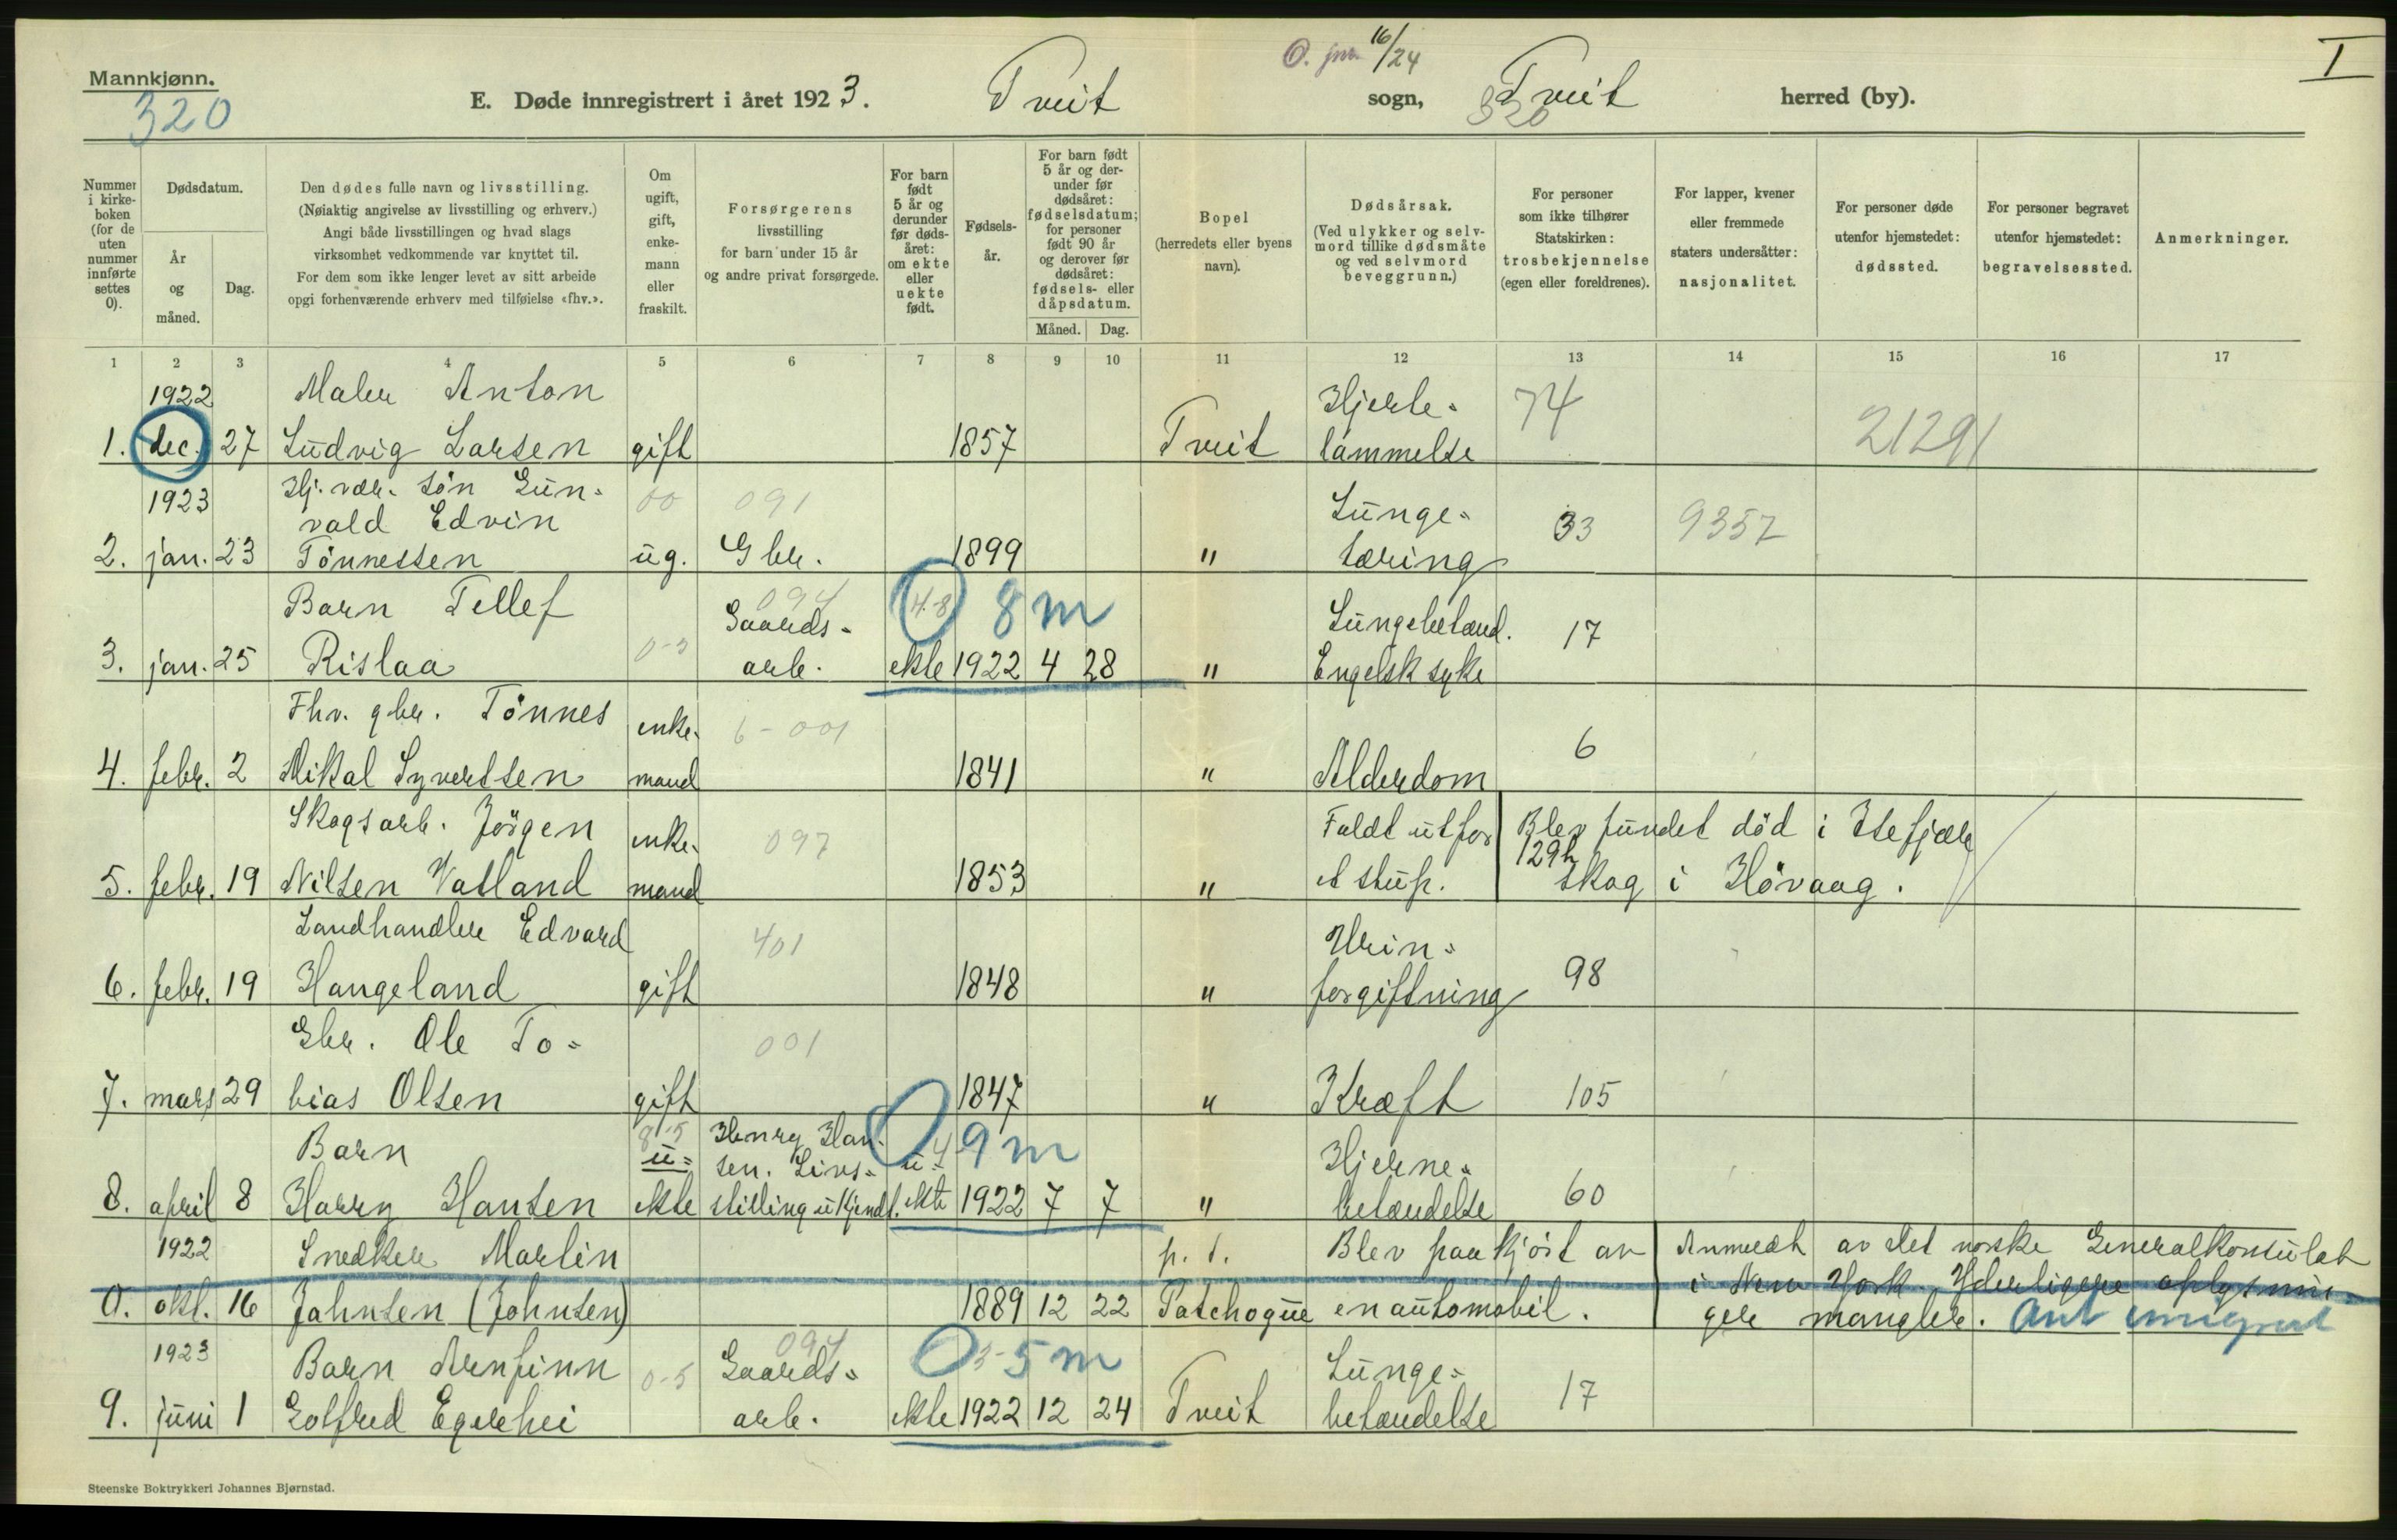 Mannkjønn.
320
E. Døde innregistrert i året 1923.
Tveit
sogn,
16/24
Tveit
320
herred (by).
I
Nummer i kirke-boken (for de uten nummer innførte settes 0).
Dødsdatum.
År og måned.
Dag.
Den dødes fulle navn og livsstilling.
(Nøiaktig angivelse av livsstilling og erhverv.)
Angi både livsstillingen og hvad slags
virksomhet vedkommende var knyttet til.
For dem som ikke lenger levet av sitt arbeide
opgi forhenværende erhverv med tilføielse «fhv.».
Om ugift, gift, enke-mann eller fraskilt.
Forsørgerens
livsstilling
for barn under 15 år
og andre privat forsørgede.
For barn født 5 år og derunder før døds-året: om ekte eller uekte født.
Fødsels-år.
For barn født 5 år og der-under før dødsåret: fødselsdatum; for personer født 90 år og derover før dødsåret: fødsels- eller dåpsdatum.
Måned.
Dag.
Bopel
(herredets eller byens
navn).
Dødsårsak.
(Ved ulykker og selv-
mord tillike dødsmåte
og ved selvmord
beveggrunn.)
For personer
som ikke tilhører
Statskirken:
trosbekjennelse
(egen eller foreldrenes).
For lapper, kvener
eller fremmede
staters undersåtter:
nasjonalitet.
For personer døde
utenfor hjemstedet:
dødssted.
For personer begravet
utenfor hjemstedet:
begravelsessted.
Anmerkninger.
1 2 3 4 5 6 7 8 9 10 11 12 13 14 15 16 17
1922 Maler Anton Hjerte- 74
1. dec. 27 Ludvig Larsen gift 1857 Tveit lammelse 21291
1923 Hj. vær. søn Gun- 00 091 Lunge-
vald Edvin 33 9357
2. jan. 23 Tönnessen ug. Gbr. 1899 " tæring
Barn Tellef 094 Gaards- 4-8 8 m Lungebetænd. 17
3. jan. 25 Rislaa 0-5 arb. ekte 1922 4 28 " Engelsk syke
Fhv. gbr. Tönnes enke- 6-001 6
4. febr. 2 Mikal Syvertsen mand 1841 " Alderdom
Skogsarb. Jörgen enke- 097 Faldt utfor Blev fundet död i Stefjær
129h
5. febr. 19 Nilsen Vatland mand 1853 " et stup. skog i Hövaag.
Landhandler Edvard 401 Urin- 98
6. febr. 19 Haugeland gift 1848 " forgiftning
Gbr. Ole To- 001
7. mars 29 bias Olsen gift 1847 " Kræft 105
Barn u- Henry Han- u- 9 m Hjerne-
sen. Livs-
8. april 8 Harry Hansen ekte stilling ukjendt. ekte 1922 7 7 " betændelse 60
1922 Snedker Martin p. t. Blev paakjört av Anmeldt av det norske Generalkonsulat
i New York. Yderligere oplysnin-
0. okt. 16 Jahnsen (Johnsen) 1889 12 22 Patchogue en automobil. ger mangler. Ant emigrert
1923 Barn Arnfinn 0-5 094 Gaards- 5 m Lunge- 17
9. juni 1 Golfred Egerhei arb. ekte 1922 12 24 Tveit betændelse
Steenske Boktrykkeri Johannes Bjørnstad.